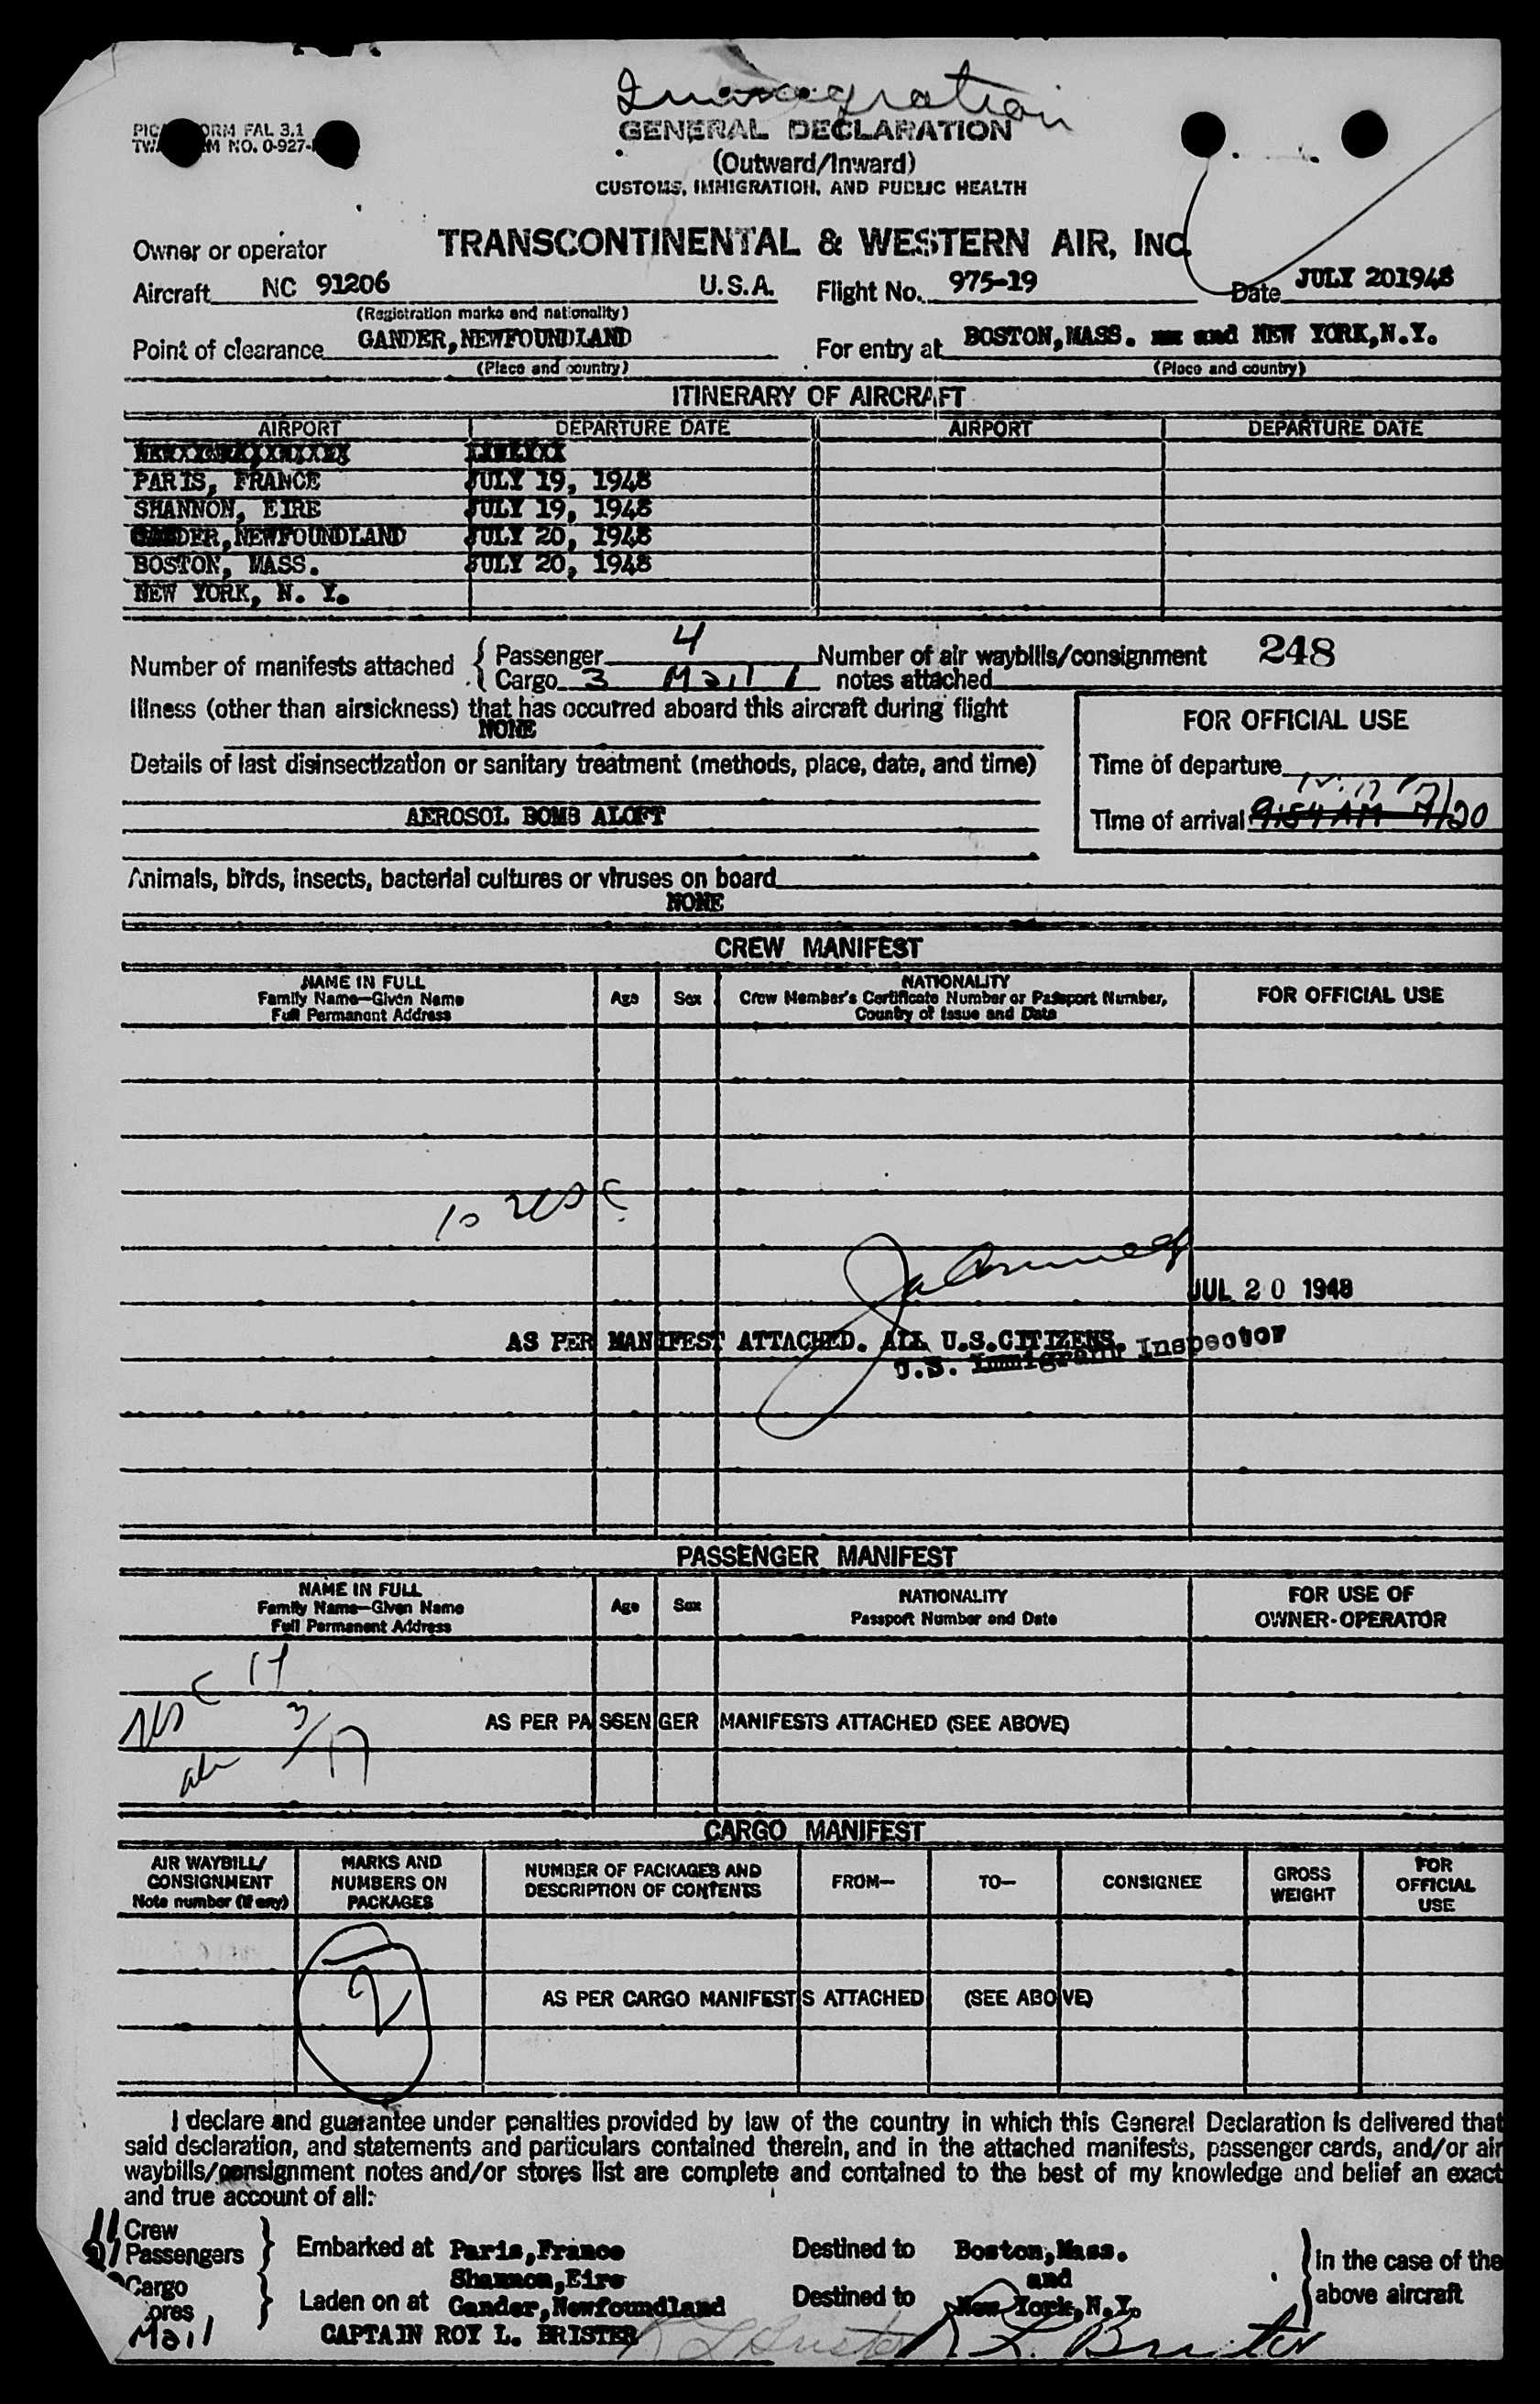 Immigration
GENERAL DECLARATION
(Outward/Inward)
CUSTOMS, IMMIGRATION, AND PUBLIC HEALTH
FORM FAL 3.1
NO. 0-927-
Owner or operator TRANSCONTINENTAL & WESTERN AIR, INC.
Aircraft NC 91206 U.S.A. Flight No. 975-19 Date JULY 201948
(Registration marks and nationality)
Point of clearance GANDER, NEWFOUNDLAND For entry at BOSTON, MASS. and NEW YORK, N.Y.
(Place and country) (Place and country)
ITINERARY OF AIRCRAFT
AIRPORT DEPARTURE DATE AIRPORT DEPARTURE DATE
PARIS, FRANCE JULY 19, 1948
SHANNON, EIRE JULY 19, 1948
GANDER, NEWFOUNDLAND JULY 20, 1948
BOSTON, MASS. JULY 20, 1948
NEW YORK, N. Y.
Number of manifests attached { Passenger 4 Number of air waybills/consignment 248
Cargo 3 Mail 1 notes attached
Illness (other than airsickness) that has occurred aboard this aircraft during flight
NONE
FOR OFFICIAL USE
Details of last disinsectization or sanitary treatment (methods, place, date, and time)
Time of departure
AEROSOL BOMB ALOFT
Time of arrival 9:54 AM 7/20
Animals, birds, insects, bacterial cultures or viruses on board
NONE
CREW MANIFEST
NAME IN FULL
Family Name—Given Name
Full Permanent Address
Age Sex
NATIONALITY
Crew Member's Certificate Number or Passport Number,
Country of Issue and Date
FOR OFFICIAL USE
10 USC
JUL 20 1948
AS PER MANIFEST ATTACHED. ALL U.S.CITIZENS.
U.S. Immigrant Inspector
PASSENGER MANIFEST
NAME IN FULL
Family Name—Given Name
Full Permanent Address
Age Sex
NATIONALITY
Passport Number and Date
FOR USE OF
OWNER-OPERATOR
USC
AS PER PASSENGER MANIFESTS ATTACHED (SEE ABOVE)
CARGO MANIFEST
AIR WAYBILL/
CONSIGNMENT
Note number (If any)
MARKS AND
NUMBERS ON
PACKAGES
NUMBER OF PACKAGES AND
DESCRIPTION OF CONTENTS
FROM—
TO—
CONSIGNEE
GROSS
WEIGHT
FOR
OFFICIAL
USE
AS PER CARGO MANIFESTS ATTACHED (SEE ABOVE)
I declare and guarantee under penalties provided by law of the country in which this General Declaration is delivered that
said declaration, and statements and particulars contained therein, and in the attached manifests, passenger cards, and/or air
waybills/consignment notes and/or stores list are complete and contained to the best of my knowledge and belief an exact
and true account of all:
Crew
Passengers } Embarked at Paris, France Destined to Boston, Mass. } in the case of the
Shannon, Eire and
Cargo } Laden on at Gander, Newfoundland Destined to New York, N.Y. above aircraft
Mail CAPTAIN ROY L. BRISTER R L Brister R. L. Brister